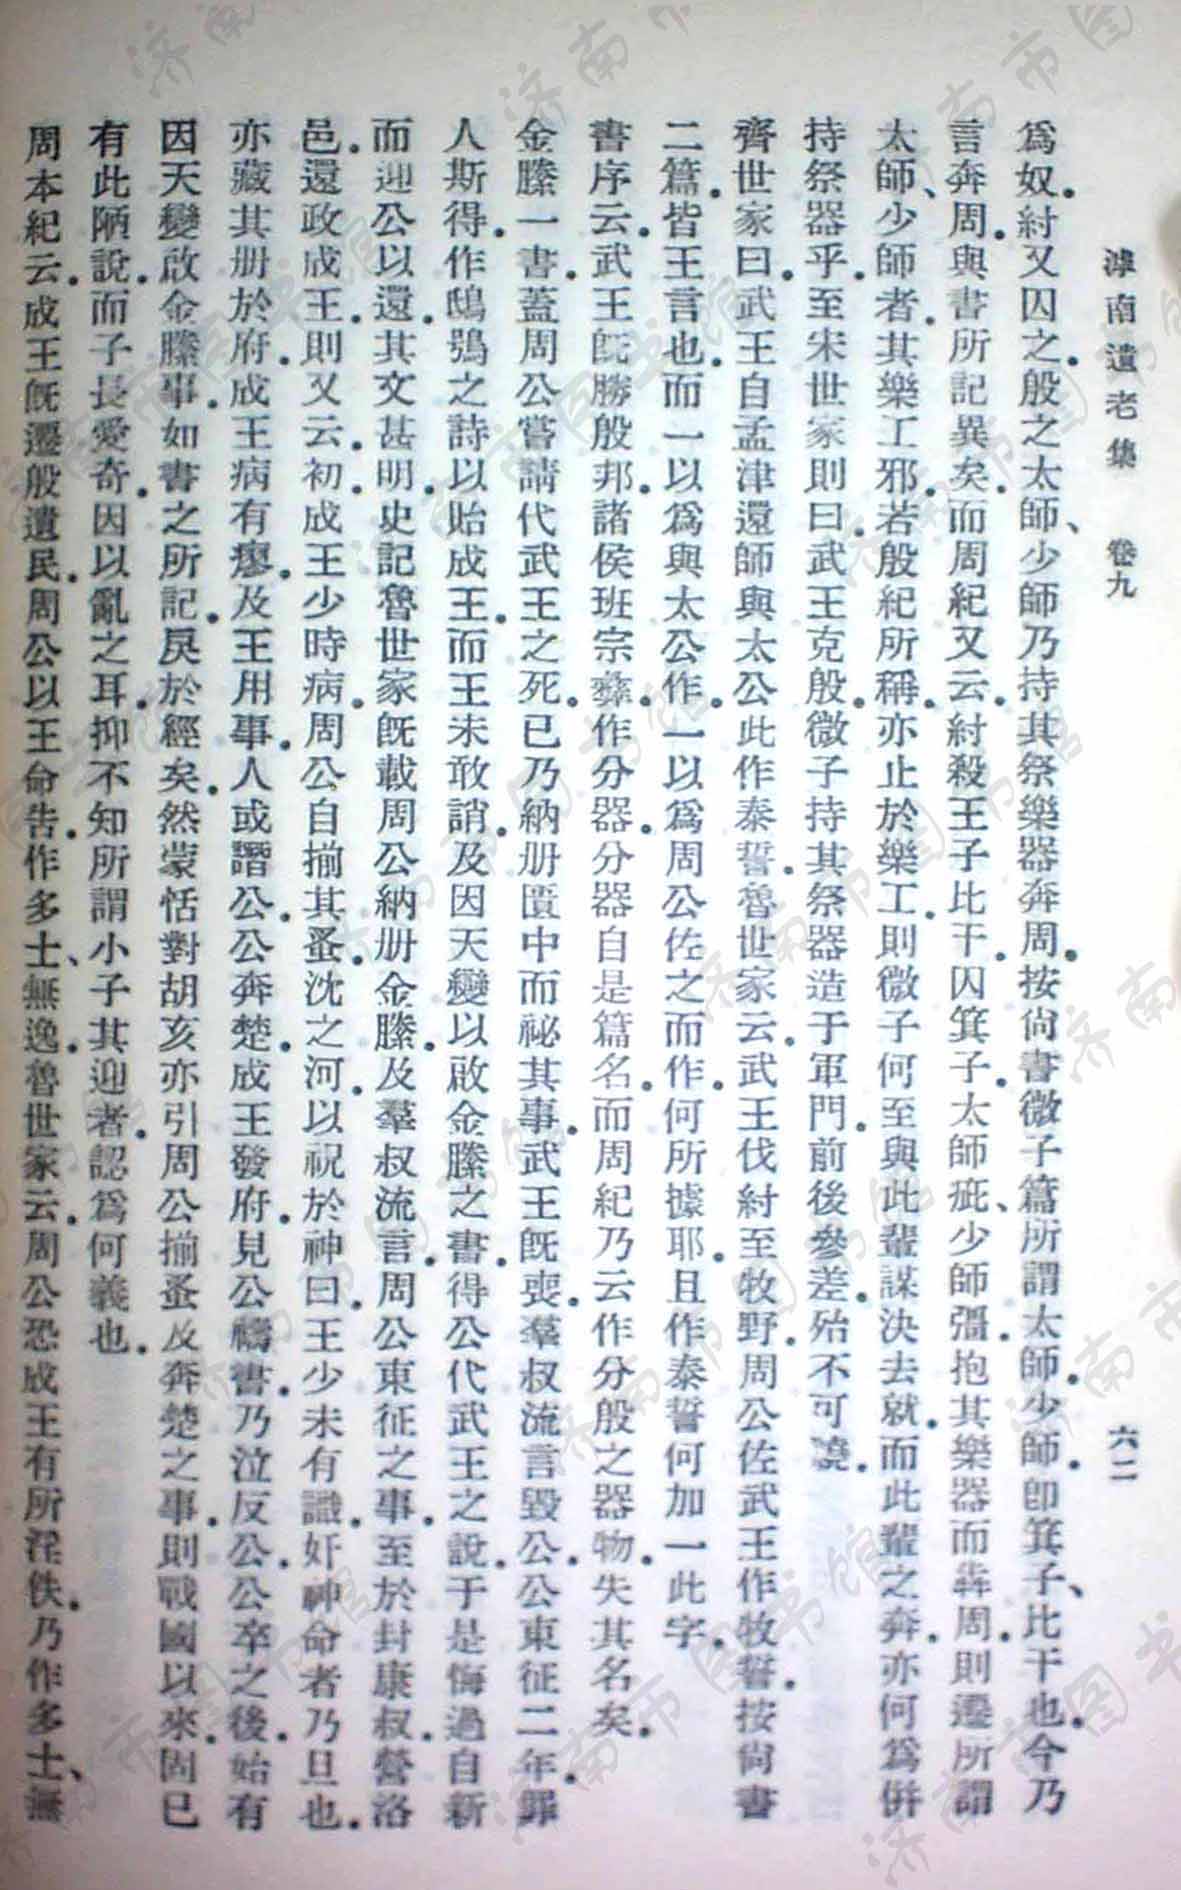 滹南遺老集　卷九　六二
爲奴。紂又囚之。殷之太師、少師乃持其祭樂器奔周。按尙書微子篇所謂太師。少師。卽箕子、比干也。今乃
言奔周。與書所記異矣。而周紀又云。紂殺王子比干。囚箕子。太師疵、少師彊。抱其樂器而犇周。則遷所謂
太師、少師者。其樂工邪。若殷紀所稱。亦止於樂工。則微子何至與此輩謀決去就。而此輩之奔。亦何爲倂
持祭器乎。至宋世家則曰。武王克殷。微子持其祭器造于軍門。前後參差。殆不可曉。
齊世家曰。武王自孟津還師。與太公此作泰誓。魯世家云。武王伐紂至牧野。周公佐武王作牧誓。按尙書
二篇。皆王言也。而一以爲與太公作。一以爲周公佐之而作。何所據耶。且作泰誓何加一此字。
書序云。武王旣勝殷邦。諸侯班宗彝。作分器。分器自是篇名。而周紀乃云作分殷之器物。失其名矣。
金縢一書。蓋周公嘗請代武王之死。已乃納册匱中而祕其事。武王旣喪。羣叔流言毀公。公東征二年。罪
人斯得。作鴟鴞之詩以貽成王。而王未敢誚。及因天變以啟金縢之書。得公代武王之說。于是悔過自新
而迎公以還。其文甚明。史記魯世家旣載周公納册金縢。及羣叔流言。周公東征之事。至於封康叔。營洛
邑。還政成王。則又云。初。成王少時病。周公自揃其蚤。沈之河。以祝於神曰。王少未有識。奸神命者乃旦也。
亦藏其册於府。成王病有瘳。及王用事。人或譖公。公奔楚。成王發府。見公禱書。乃泣反公。公卒之後。始有
因天變啟金縢事。如書之所記。戾於經矣。然蒙恬對胡亥亦引周公揃蚤及奔楚之事。則戰國以來。固已
有此陋說。而子長愛奇。因以亂之耳。抑不知所謂小子其迎者。認爲何義也。
周本紀云。成王旣遷殷遺民。周公以王命告。作多士、無逸。魯世家云。周公恐成王有所淫佚。乃作多士、無